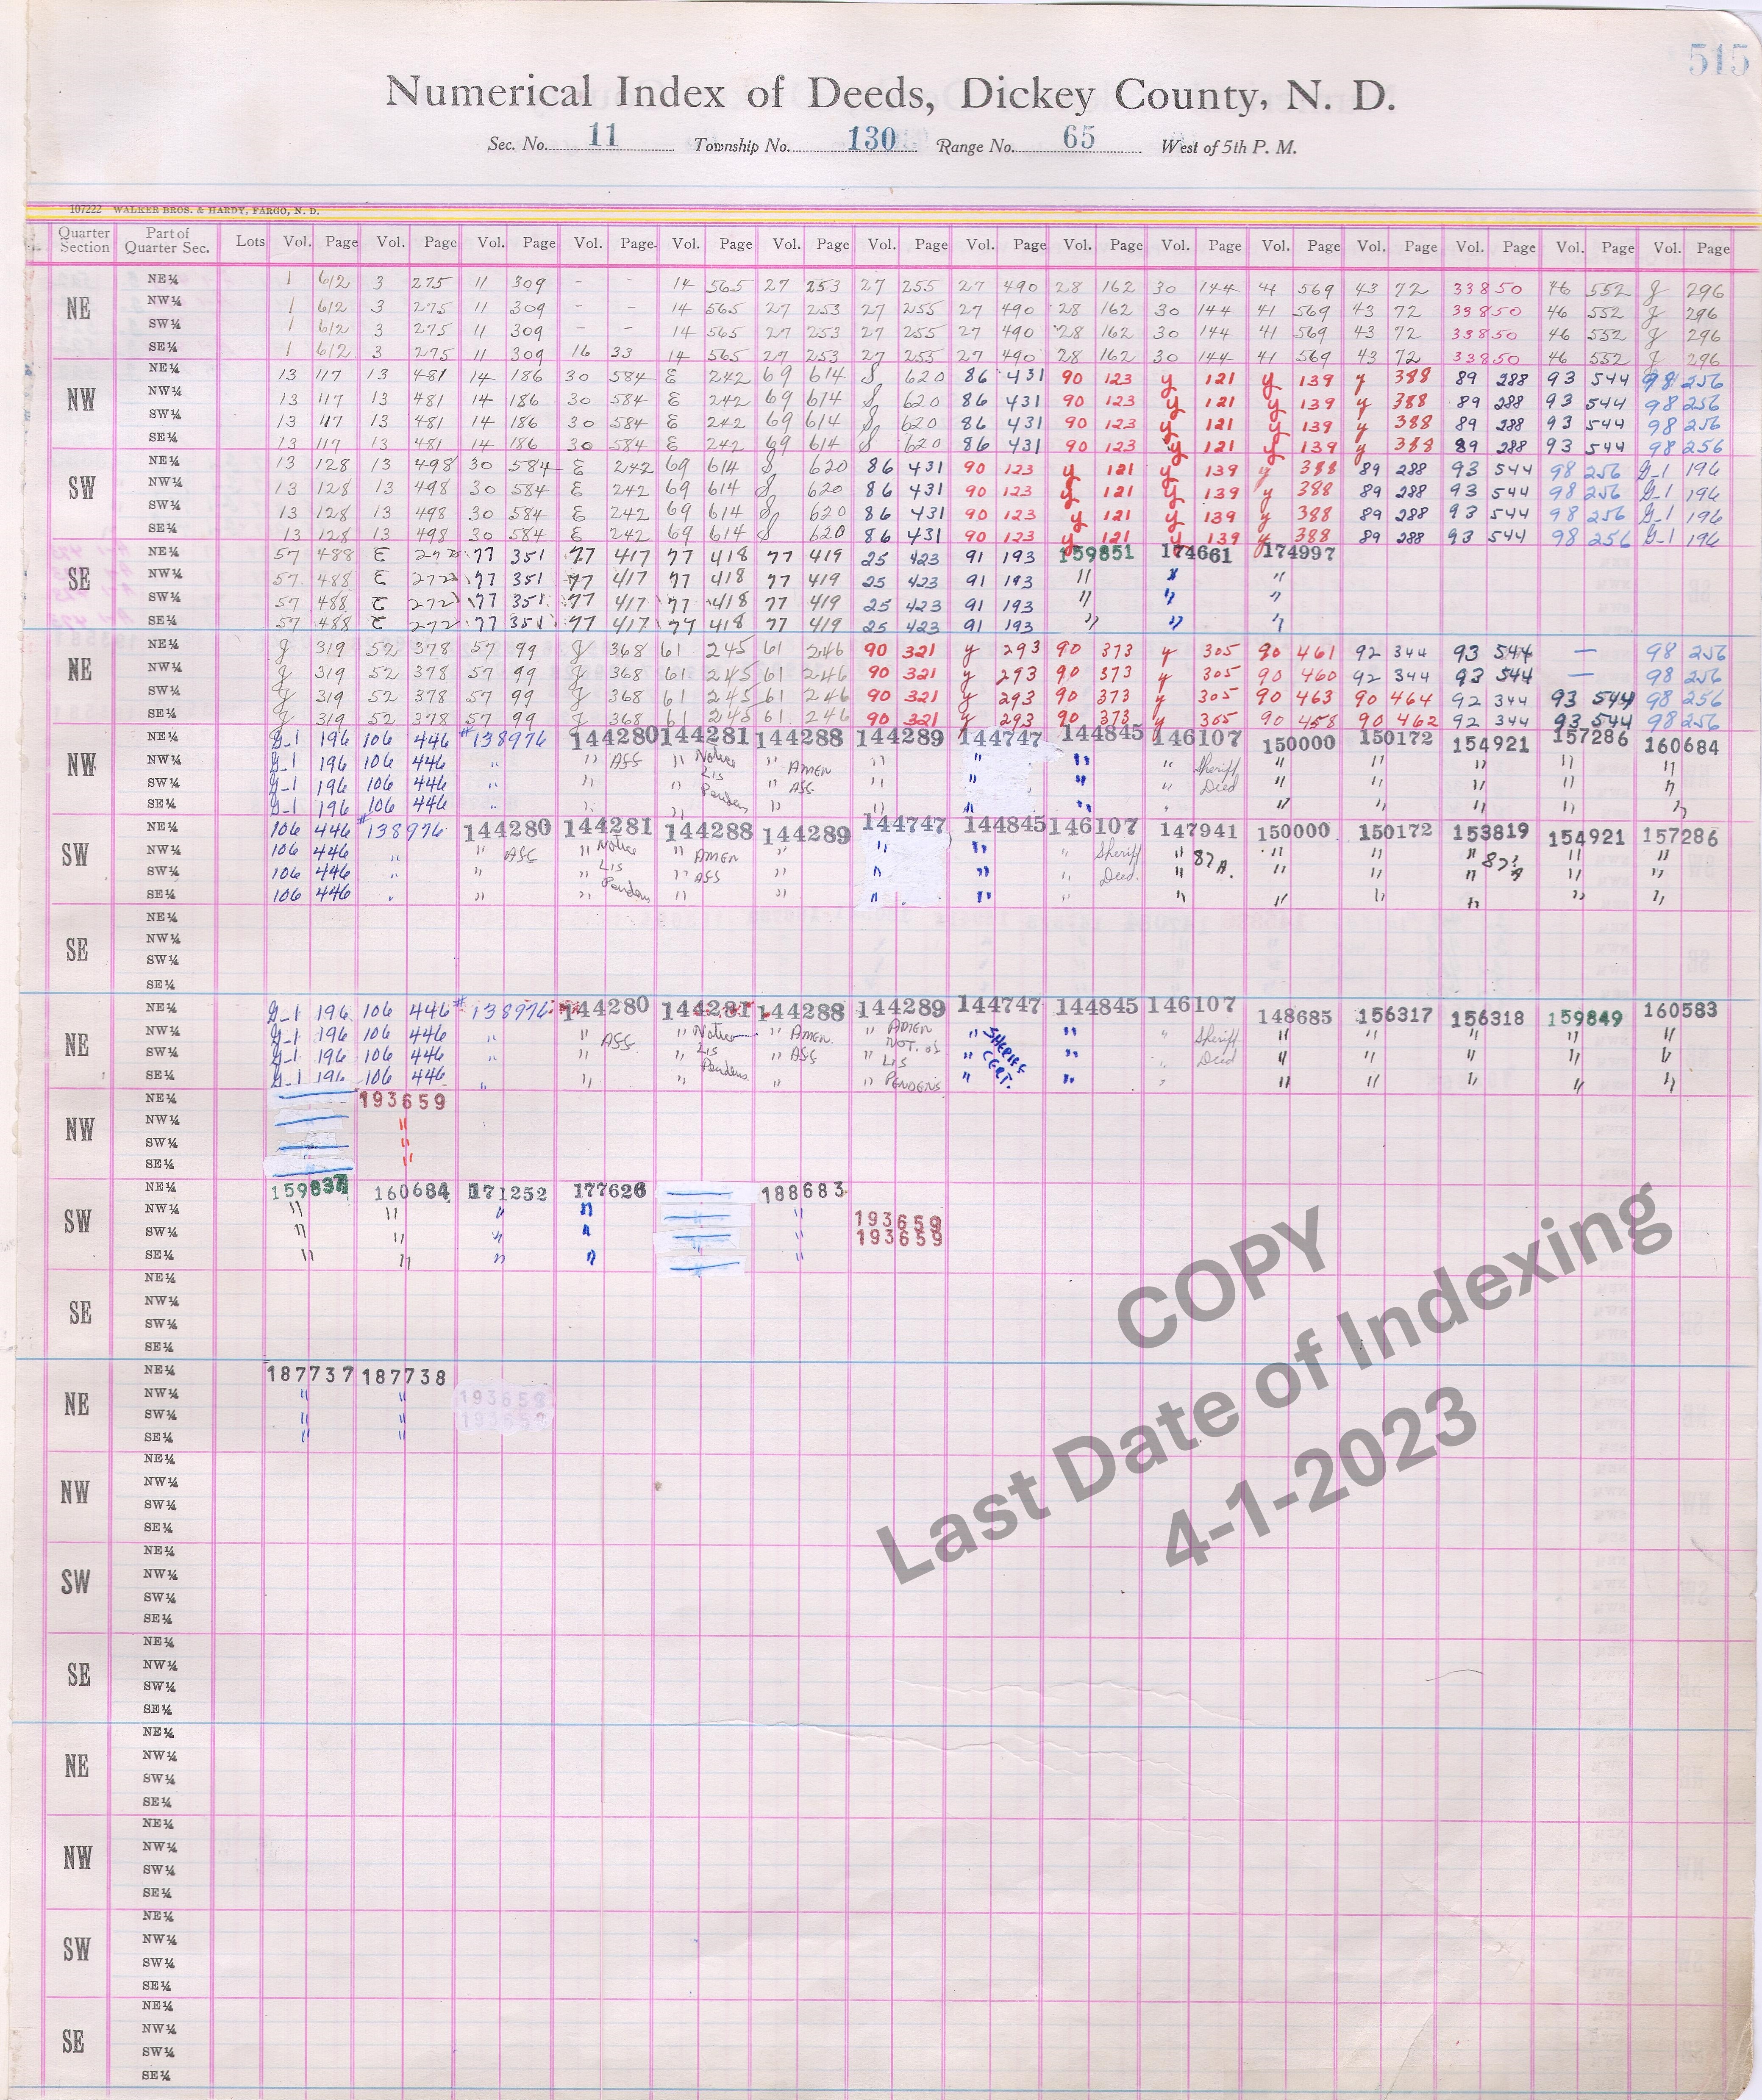 515
Numerical Index of Deeds, Dickey County, N. D.
Sec. No. 11 Township No. 130 Range No. 65 West of 5th P. M.
107222 WALKER BROS. & HARDY, FARGO, N. D.
Quarter Section Part of Quarter Sec. Lots Vol. Page Vol. Page Vol. Page Vol. Page Vol. Page Vol. Page Vol. Page Vol. Page Vol. Page Vol. Page Vol. Page Vol. Page Vol. Page Vol. Page Vol. Page
NE
NE¼ 1 612 3 275 11 309 - - 14 565 27 253 27 255 27 490 28 162 30 144 41 569 43 72 33850 46 552 J 296
NW¼ 1 612 3 275 11 309 - - 14 565 27 253 27 255 27 490 28 162 30 144 41 569 43 72 33850 46 552 J 296
SW¼ 1 612 3 275 11 309 - - 14 565 27 253 27 255 27 490 28 162 30 144 41 569 43 72 33850 46 552 J 296
SE¼ 1 612 3 275 11 309 16 33 14 565 27 253 27 255 27 490 28 162 30 144 41 569 43 72 33850 46 552 J 296
NW
NE¼ 13 117 13 481 14 186 30 584 E 242 69 614 S 620 86 431 90 123 y 121 y 139 y 388 89 288 93 544 98 256
NW¼ 13 117 13 481 14 186 30 584 E 242 69 614 S 620 86 431 90 123 y 121 y 139 y 388 89 288 93 544 98 256
SW¼ 13 117 13 481 14 186 30 584 E 242 69 614 S 620 86 431 90 123 y 121 y 139 y 388 89 288 93 544 98 256
SE¼ 13 117 13 481 14 186 30 584 E 242 69 614 S 620 86 431 90 123 y 121 y 139 y 388 89 288 93 544 98 256
SW
NE¼ 13 128 13 498 30 584 E 242 69 614 S 620 86 431 90 123 y 121 y 139 y 388 89 288 93 544 98 256 G-1 196
NW¼ 13 128 13 498 30 584 E 242 69 614 S 620 86 431 90 123 y 121 y 139 y 388 89 288 93 544 98 256 G-1 196
SW¼ 13 128 13 498 30 584 E 242 69 614 S 620 86 431 90 123 y 121 y 139 y 388 89 288 93 544 98 256 G-1 196
SE¼ 13 128 13 498 30 584 E 242 69 614 S 620 86 431 90 123 y 121 y 139 y 388 89 288 93 544 98 256 G-1 196
SE
NE¼ 57 488 E 272 77 351 77 417 77 418 77 419 25 423 91 193 159851 174661 174997
NW¼ 57 488 E 272 77 351 77 417 77 418 77 419 25 423 91 193 " " "
SW¼ 57 488 E 272 77 351 77 417 77 418 77 419 25 423 91 193 " " "
SE¼ 57 488 E 272 77 351 77 417 77 418 77 419 25 423 91 193 " " "
NE
NE¼ J 319 52 378 57 99 J 368 61 245 61 246 90 321 y 293 90 373 y 305 90 461 92 344 93 544 — 98 256
NW¼ J 319 52 378 57 99 J 368 61 245 61 246 90 321 y 293 90 373 y 305 90 460 92 344 93 544 — 98 256
SW¼ J 319 52 378 57 99 J 368 61 245 61 246 90 321 y 293 90 373 y 305 90 463 90 464 92 344 93 544 98 256
SE¼ J 319 52 378 57 99 J 368 61 245 61 246 90 321 y 293 90 373 y 305 90 458 90 462 92 344 93 544 98 256
NW
NE¼ G-1 196 106 446 #138976 144280 144281 144288 144289 144747 144845 146107 150000 150172 154921 157286 160684
NW¼ G-1 196 106 446 " " ASS " Notice " AMEN " " " " Sheriff " " " " "
SW¼ G-1 196 106 446 " " " Lis " ASS " " " " Deed " " " " "
SE¼ G-1 196 106 446 " " " Penden " " " " " " " " " "
SW
NE¼ 106 446 #138976 144280 144281 144288 144289 144747 144845 146107 147941 150000 150172 153819 154921 157286
NW¼ 106 446 " " ASS " Notice " AMEN " " " " Sheriff " 87A. " " " 87A " "
SW¼ 106 446 " " " Lis " ASS " " " " Deed. " " " " " "
SE¼ 106 446 " " " Pendens " " " " " " " " " " "
SE
NE¼
NW¼
SW¼
SE¼
NE
NE¼ G-1 196 106 446 #138976 144280 144281 144288 144289 144747 144845 146107 148685 156317 156318 159849 160583
NW¼ G-1 196 106 446 " " ASS. " Notice " AMEN. " AMEN NOT. of " SHERIFF " " Sheriff " " " " "
SW¼ G-1 196 106 446 " " " Lis " ASS " LIS " CERT. " " Deed " " " " "
SE¼ G-1 196 106 446 " " " Pendens " " PENDENS " " " " " " " "
NW
NE¼ 193659
NW¼ "
SW¼ "
SE¼ "
SW
NE¼ 159837 160684 171252 177626 188683
NW¼ " " " " " 193659
SW¼ " " " " 193659
SE¼ " " " " "
SE
NE¼
NW¼
SW¼
SE¼
NE
NE¼ 187737 187738
NW¼ " " 193659
SW¼ " " 193659
SE¼ " "
NW
NE¼
NW¼
SW¼
SE¼
SW
NE¼
NW¼
SW¼
SE¼
SE
NE¼
NW¼
SW¼
SE¼
NE
NE¼
NW¼
SW¼
SE¼
NW
NE¼
NW¼
SW¼
SE¼
SW
NE¼
NW¼
SW¼
SE¼
SE
NE¼
NW¼
SW¼
SE¼
COPY
Last Date of Indexing
4-1-2023